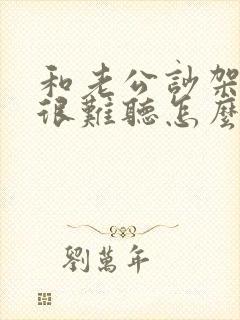 和老公訃架
很難聽怎麼
劉萬年